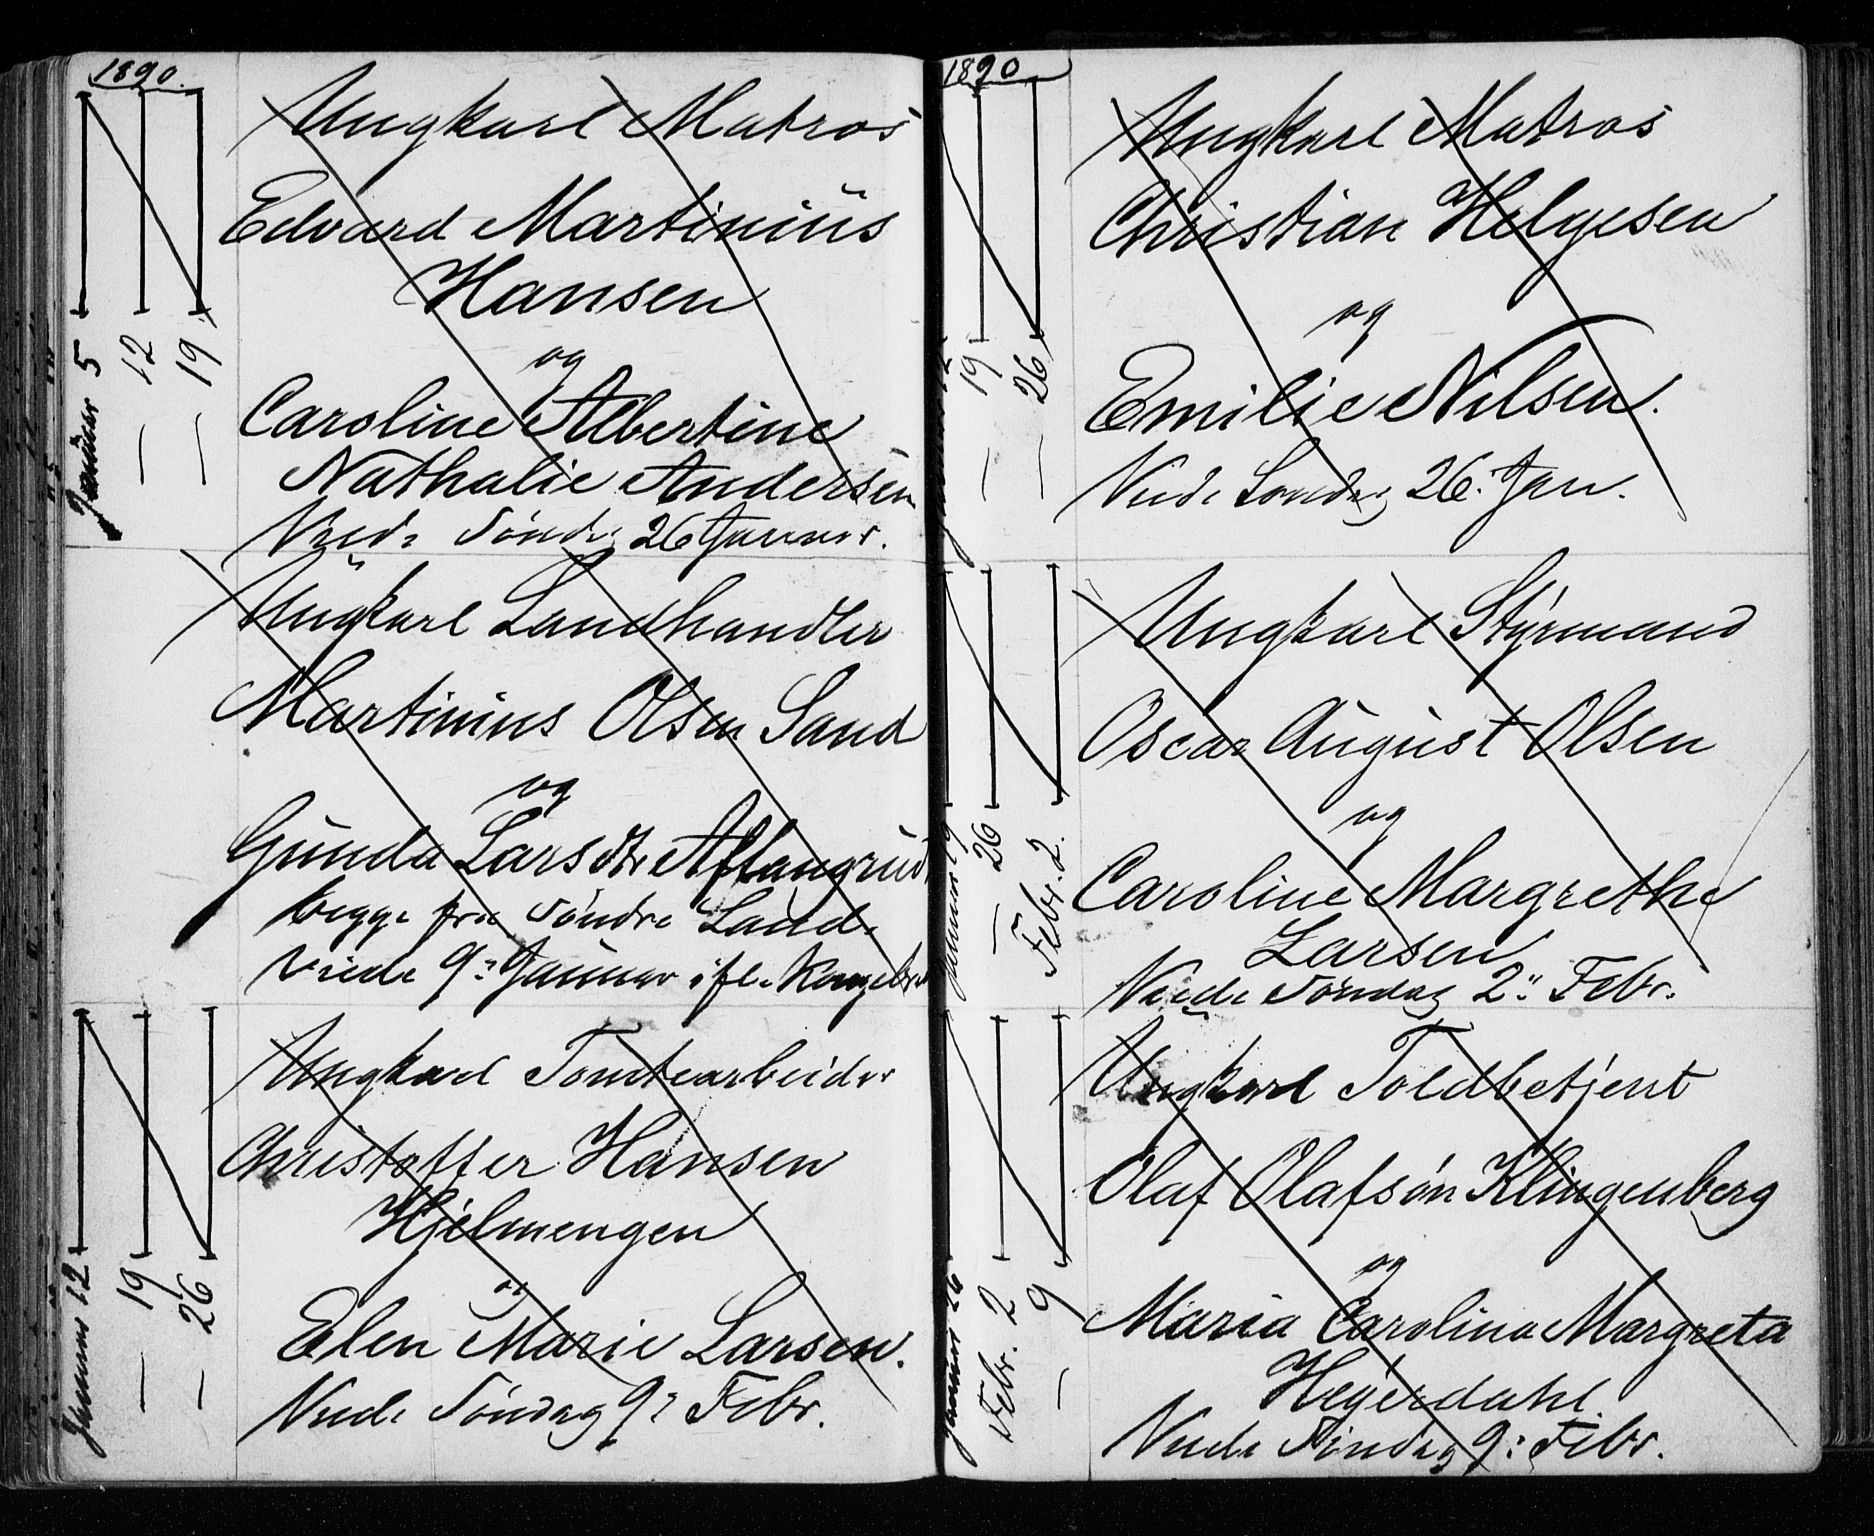 1890.
Januar 5
— 12
— 19
Ungkarl Matros
Edvard Martinius
Hansen
og
Caroline Albertine
Nathalie Andersen
Viede Sönd. 26 Januar.
Ungkarl Landhandler
Martinius Olsen Sand
og
Gunda Larsdtr
begge fra Söndre Land.
Viede 9: Januar ifl. Kongebr.
Januar 12
— 19
— 26
Ungkarl Tomtearbeider
Christoffer Hansen
Hjelmengen
og
Elen Marie Larsen.
Viede Söndag 9: Febr.
1890
Januar 12
— 19
— 26
Ungkarl Matros
Christian Helgesen
og
Emilie Nilsen.
Viede Söndag 26: Jan.
Januar 19
— 26
Febr. 2.
Ungkarl Styrmand
Oscar August Olsen
og
Caroline Margrethe
Larsen
Viede Söndag 2: Febr.
Januar 26
Febr. 2
— 9
Ungkarl Toldbetjent
Olaf Olafsön Klingenberg
og
Maria Carolina Margreta
Heyerdahl.
Viede Söndag 9: Febr.